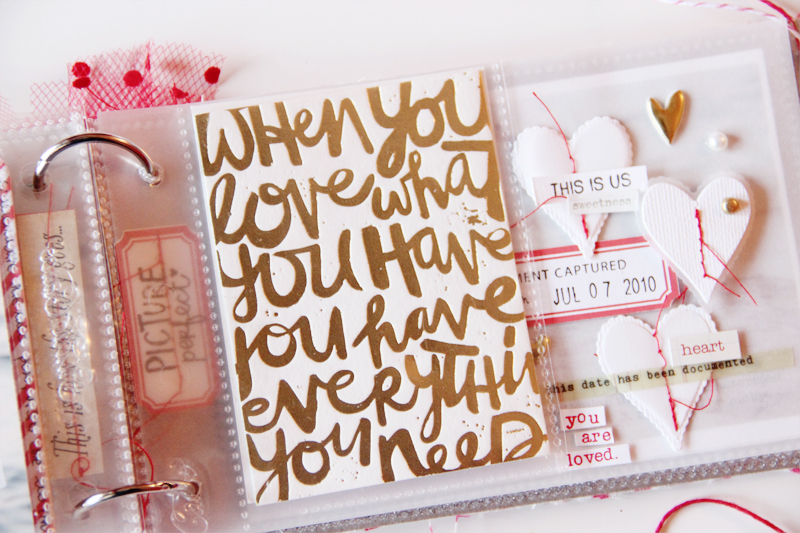 This is how the story goes...
PICTURE
perfect
WHen YOU
love wHAT
YOU HAVe
you have
everyTHi
YOU need
THIS IS US
sweetness
MENT CAPTURED
JUL 07 2010
heart
this date has been documented
you
are
loved.